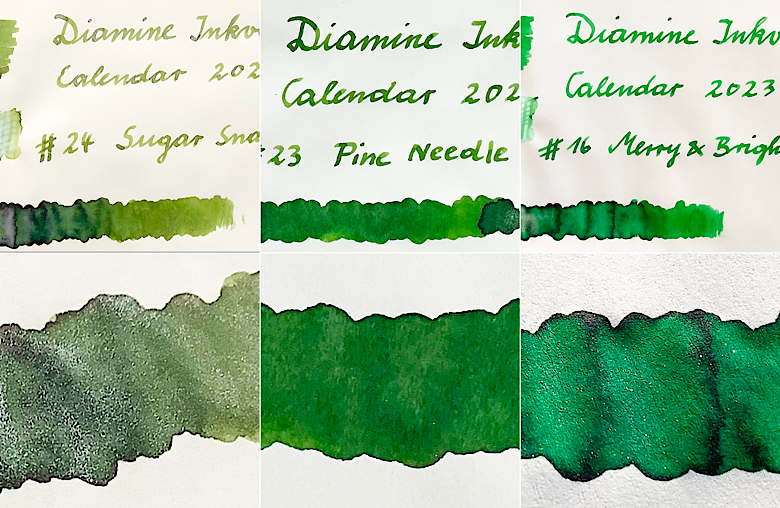 Diamine Inkv
Calendar 202
#24 Sugar Sna
Diamine Ink
Calendar 202
23 Pine Needle
Diamine Inkv
Calendar 2023
#16 Merry & Brigh